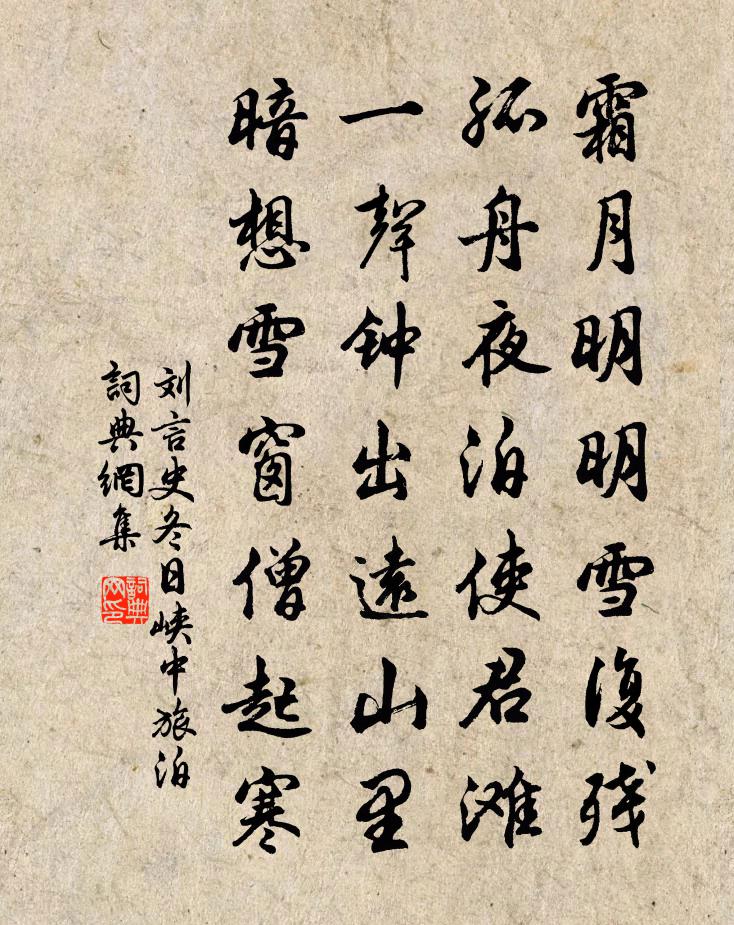 霜月明明雪復残
孤舟夜泊使君滩
一聲钟出遠山里
暗想雪窗僧起寒
刘言史冬日峡中旅泊
詞典網集
詞典网印